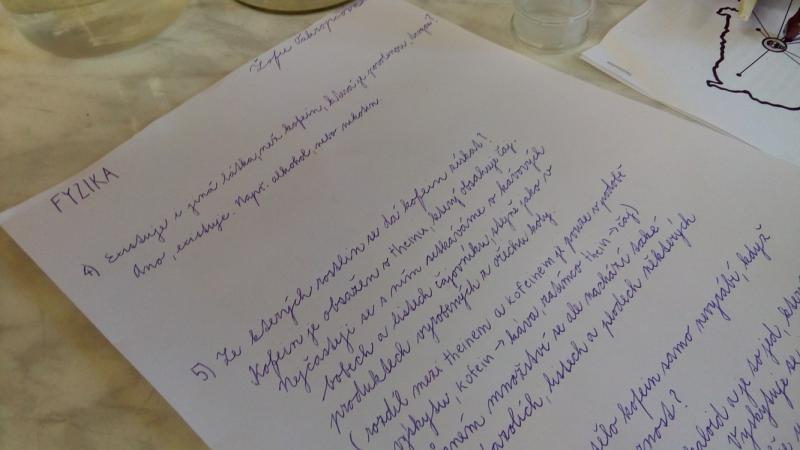 Žofie
FYZIKA
4) Existuje i jiná látka, než kofein, která je podobou
Ano, existuje. Např. alkohol nebo nikotin.
5) Ze kterých rostlin se dá kofein získat?
Kofein je obsažen v theinu, který obsahuje čaj.
Nejčastěji se s ním setkáváme v kávových
bobech a listech čajovníku, stejně jako v
produktech vyrobených z ořechu koly.
(rozdíl mezi theinem a kofeinem je pouze v podobě
výskytu, kofein → káva, zatímco thein → čaj)
množství se ale nachází také
listech a plodech některých
kofein samo nevyrábí, když
a je so jed,
Vyskytuje se